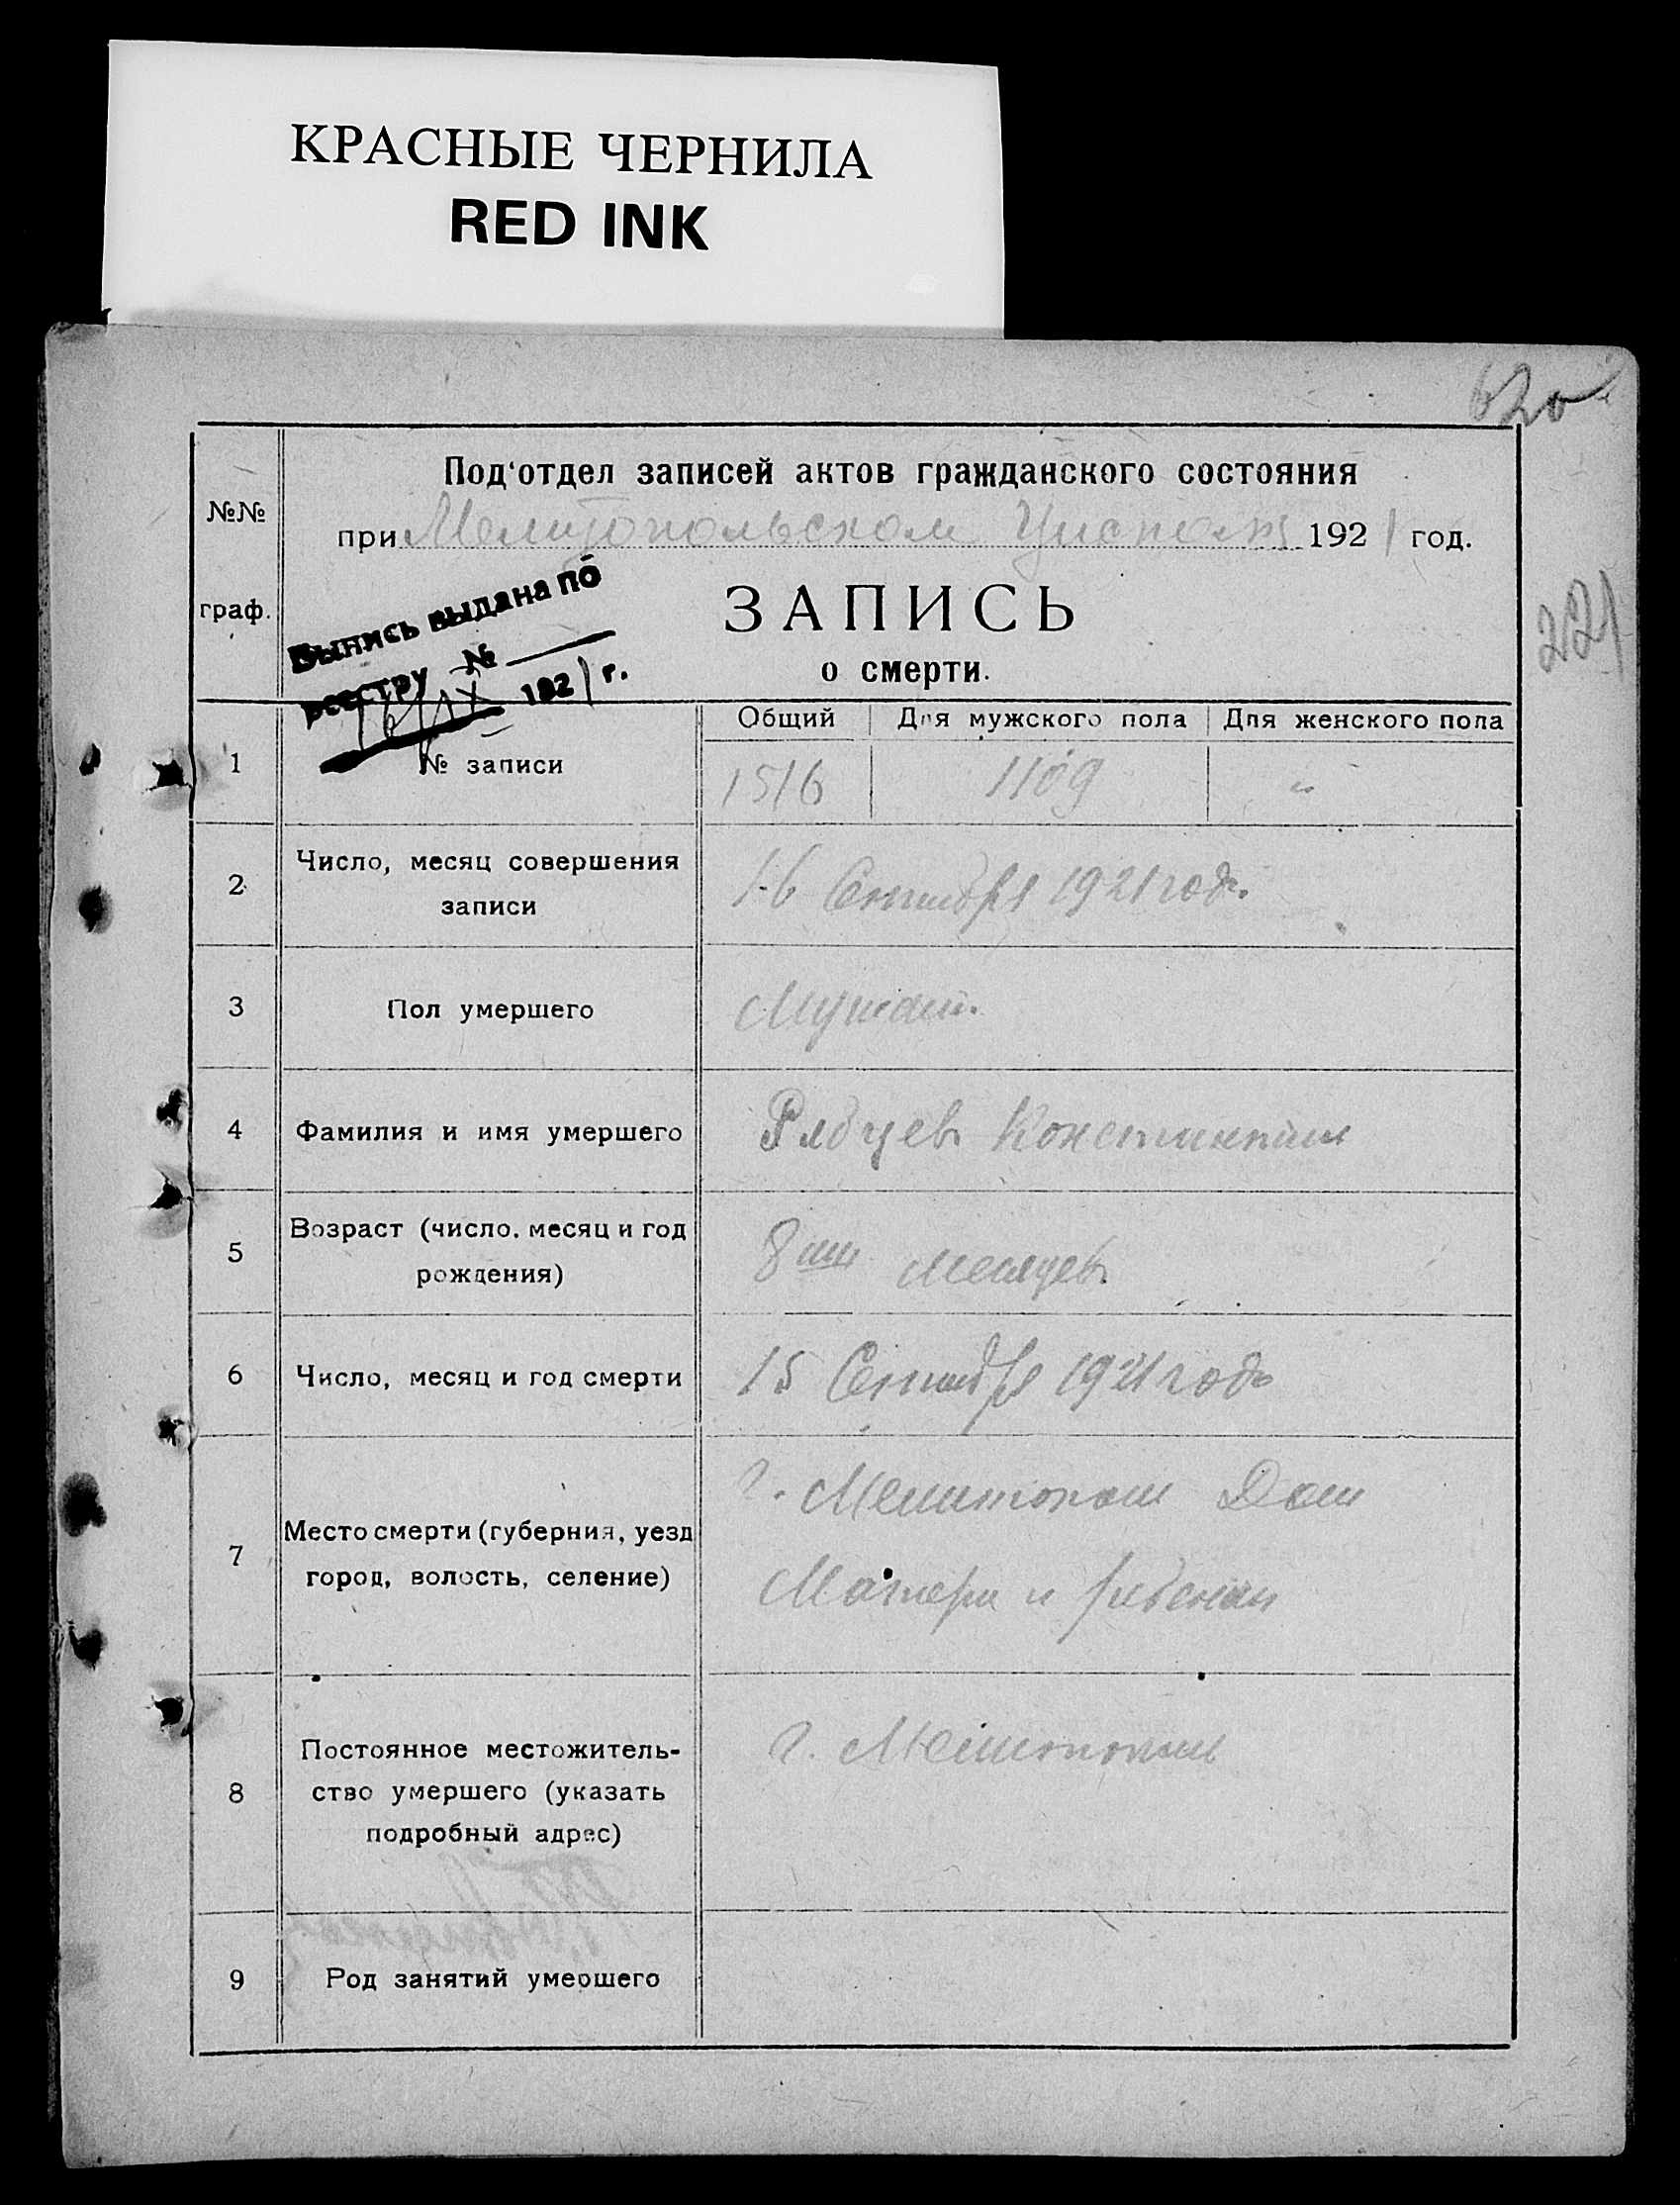 КРАСНЫЕ ЧЕРНИЛА
RED INK
620
Под'отдел записей актов гражданского состояния
№№
при Мелитопольском Уисполк 1921 год.
221
граф.
Выпись выдана по
реестру №
16/IX 1921 г.
ЗАПИСЬ
о смерти.
Общий Для мужского пола Для женского пола
1 № записи 1516 1109 "
2 Число, месяц совершения
записи
16 Сентября 1921 года.
3 Пол умершего Мужской.
4 Фамилия и имя умершего Рябцев Константин
5 Возраст (число, месяц и год
рождения)
8ми месяцев
6 Число, месяц и год смерти 15 Сентября 1921 года
7 Место смерти (губерния, уезд
город, волость, селение)
г. Мелитополь Дом
Матери и ребенка
8 Постоянное местожитель-
ство умершего (указать
подробный адрес)
г. Мелитополь
9 Род занятий умершего